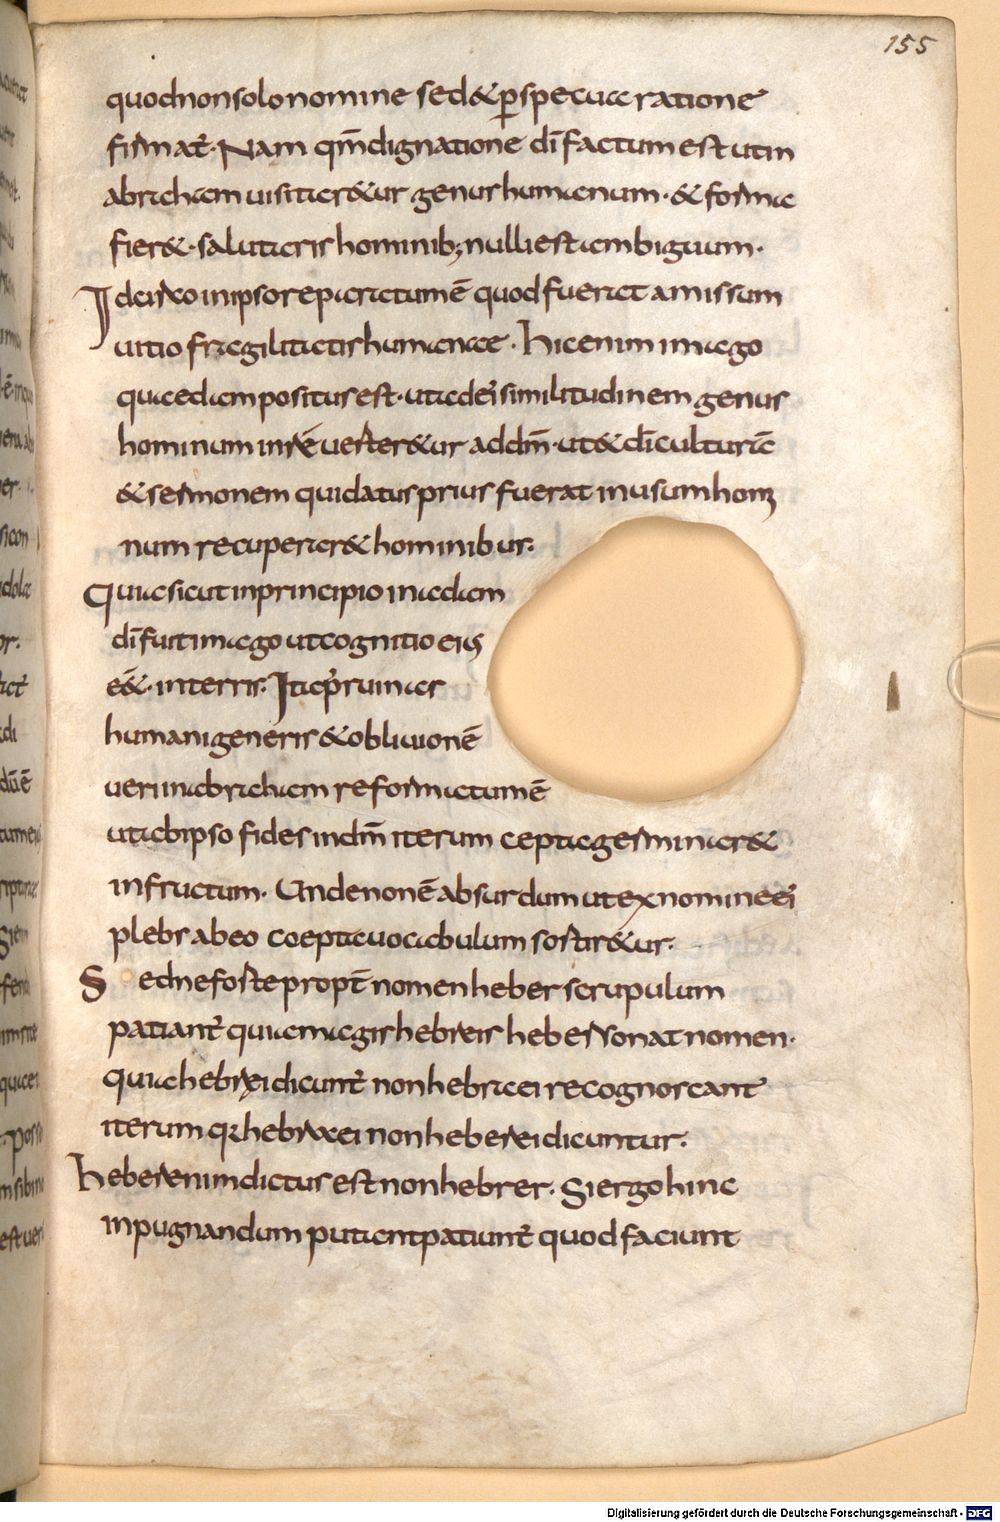 155
quod non solo nomine sed & p̱ specuat ratione
firmat̃. Nam qm̄ dignatione dī factum est ut in
abraham uisitaret&ur genus humanum. & forma
fier& salutaris hominib; nulli est ambiguum.
Ideirco in ipso reparatum ē quod fuerat amissum
uitio fragilitatis humanae. Hic enim imago
quaedam positus est. ut ad eī similitudinem genus
hominum in sē uerter&ur ad dm̄. ut & dī culturā
& sermonem qui datus prius fuerat in usum homi
num recuperar& hominibus.
Quia sicut in principio in adam
dī fuit imago ut cognitio eius
eē& in terris. Ita p̱ ruinas
humani generis & obliuionē
ueri in abraham reformatum ē
ut ab ipso fides in dm̄ iterum cepta germinar&
in fructum. Unde non ē absurdum ut ex nomine eī
plebs ab eo coepta uocabulum sortir&ur.
Sed ne forte propt̄ nomen heber scrupulum
patiant̃ quia magis hebreis heber sonat nomen.
quia hebrei dicunt̃ non hebraei recognoscant
iterum qr hebraei non heberei dicuntur.
Heber enim dictus est non hebrer. Si ergo hinc
inpugnandum putant patiunt̃ quod faciunt
Digitalisierung gefördert durch die Deutsche Forschungsgemeinschaft - DFG